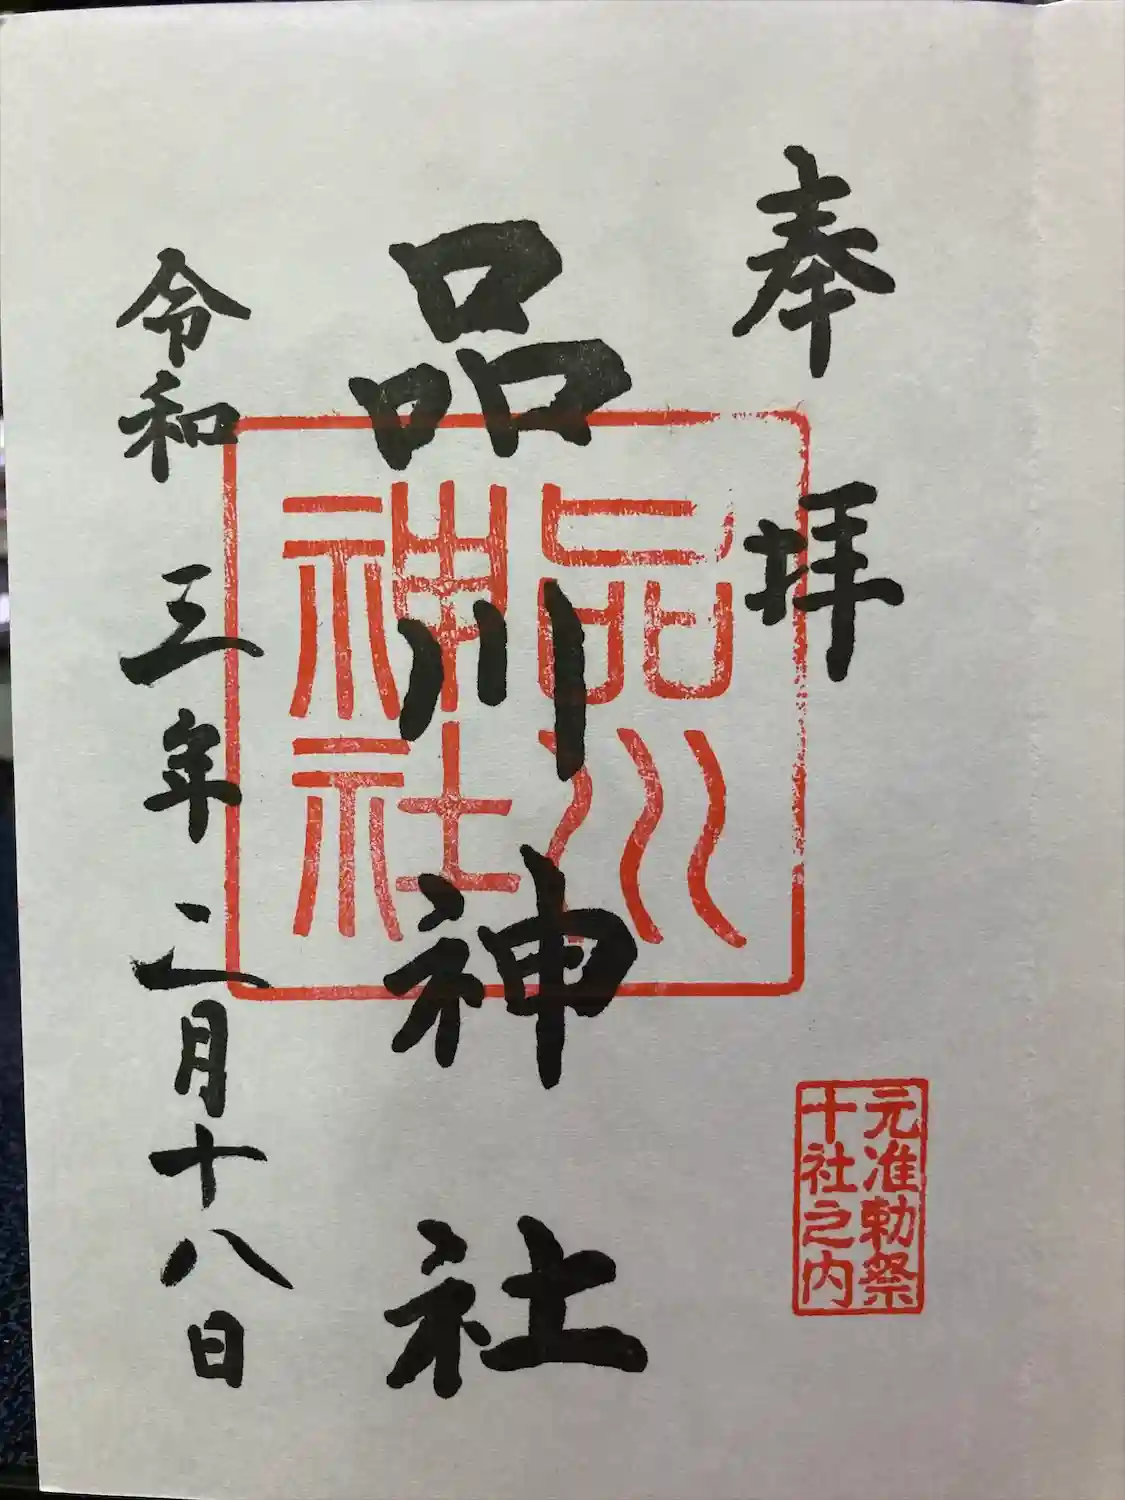 奉拝
品川神社
令和三年二月十八日
品川
神社
元准勅祭
十社之内